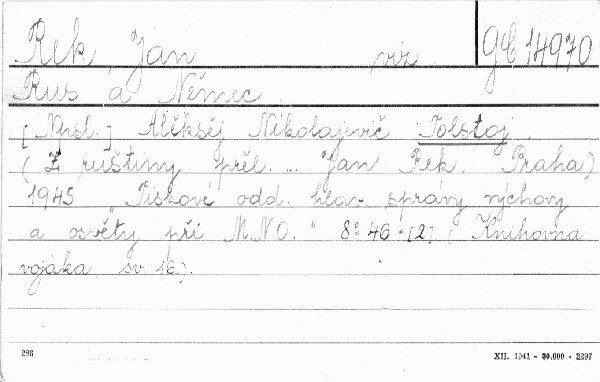 Rek Jan viz GE 14970
Rus a Němec
[Npsl.] Alěksěj Nikolajevič Tolstoj.
(Z ruštiny přel. ... Jan Rek. Praha)
1945 "Tiskové odd. hlav. správy výchovy
a osvěty při M.N.O." 8° 46-[2] (Knihovna
vojáka, sv. 16.).
286 XII. 1941 - 30.000 - 2297